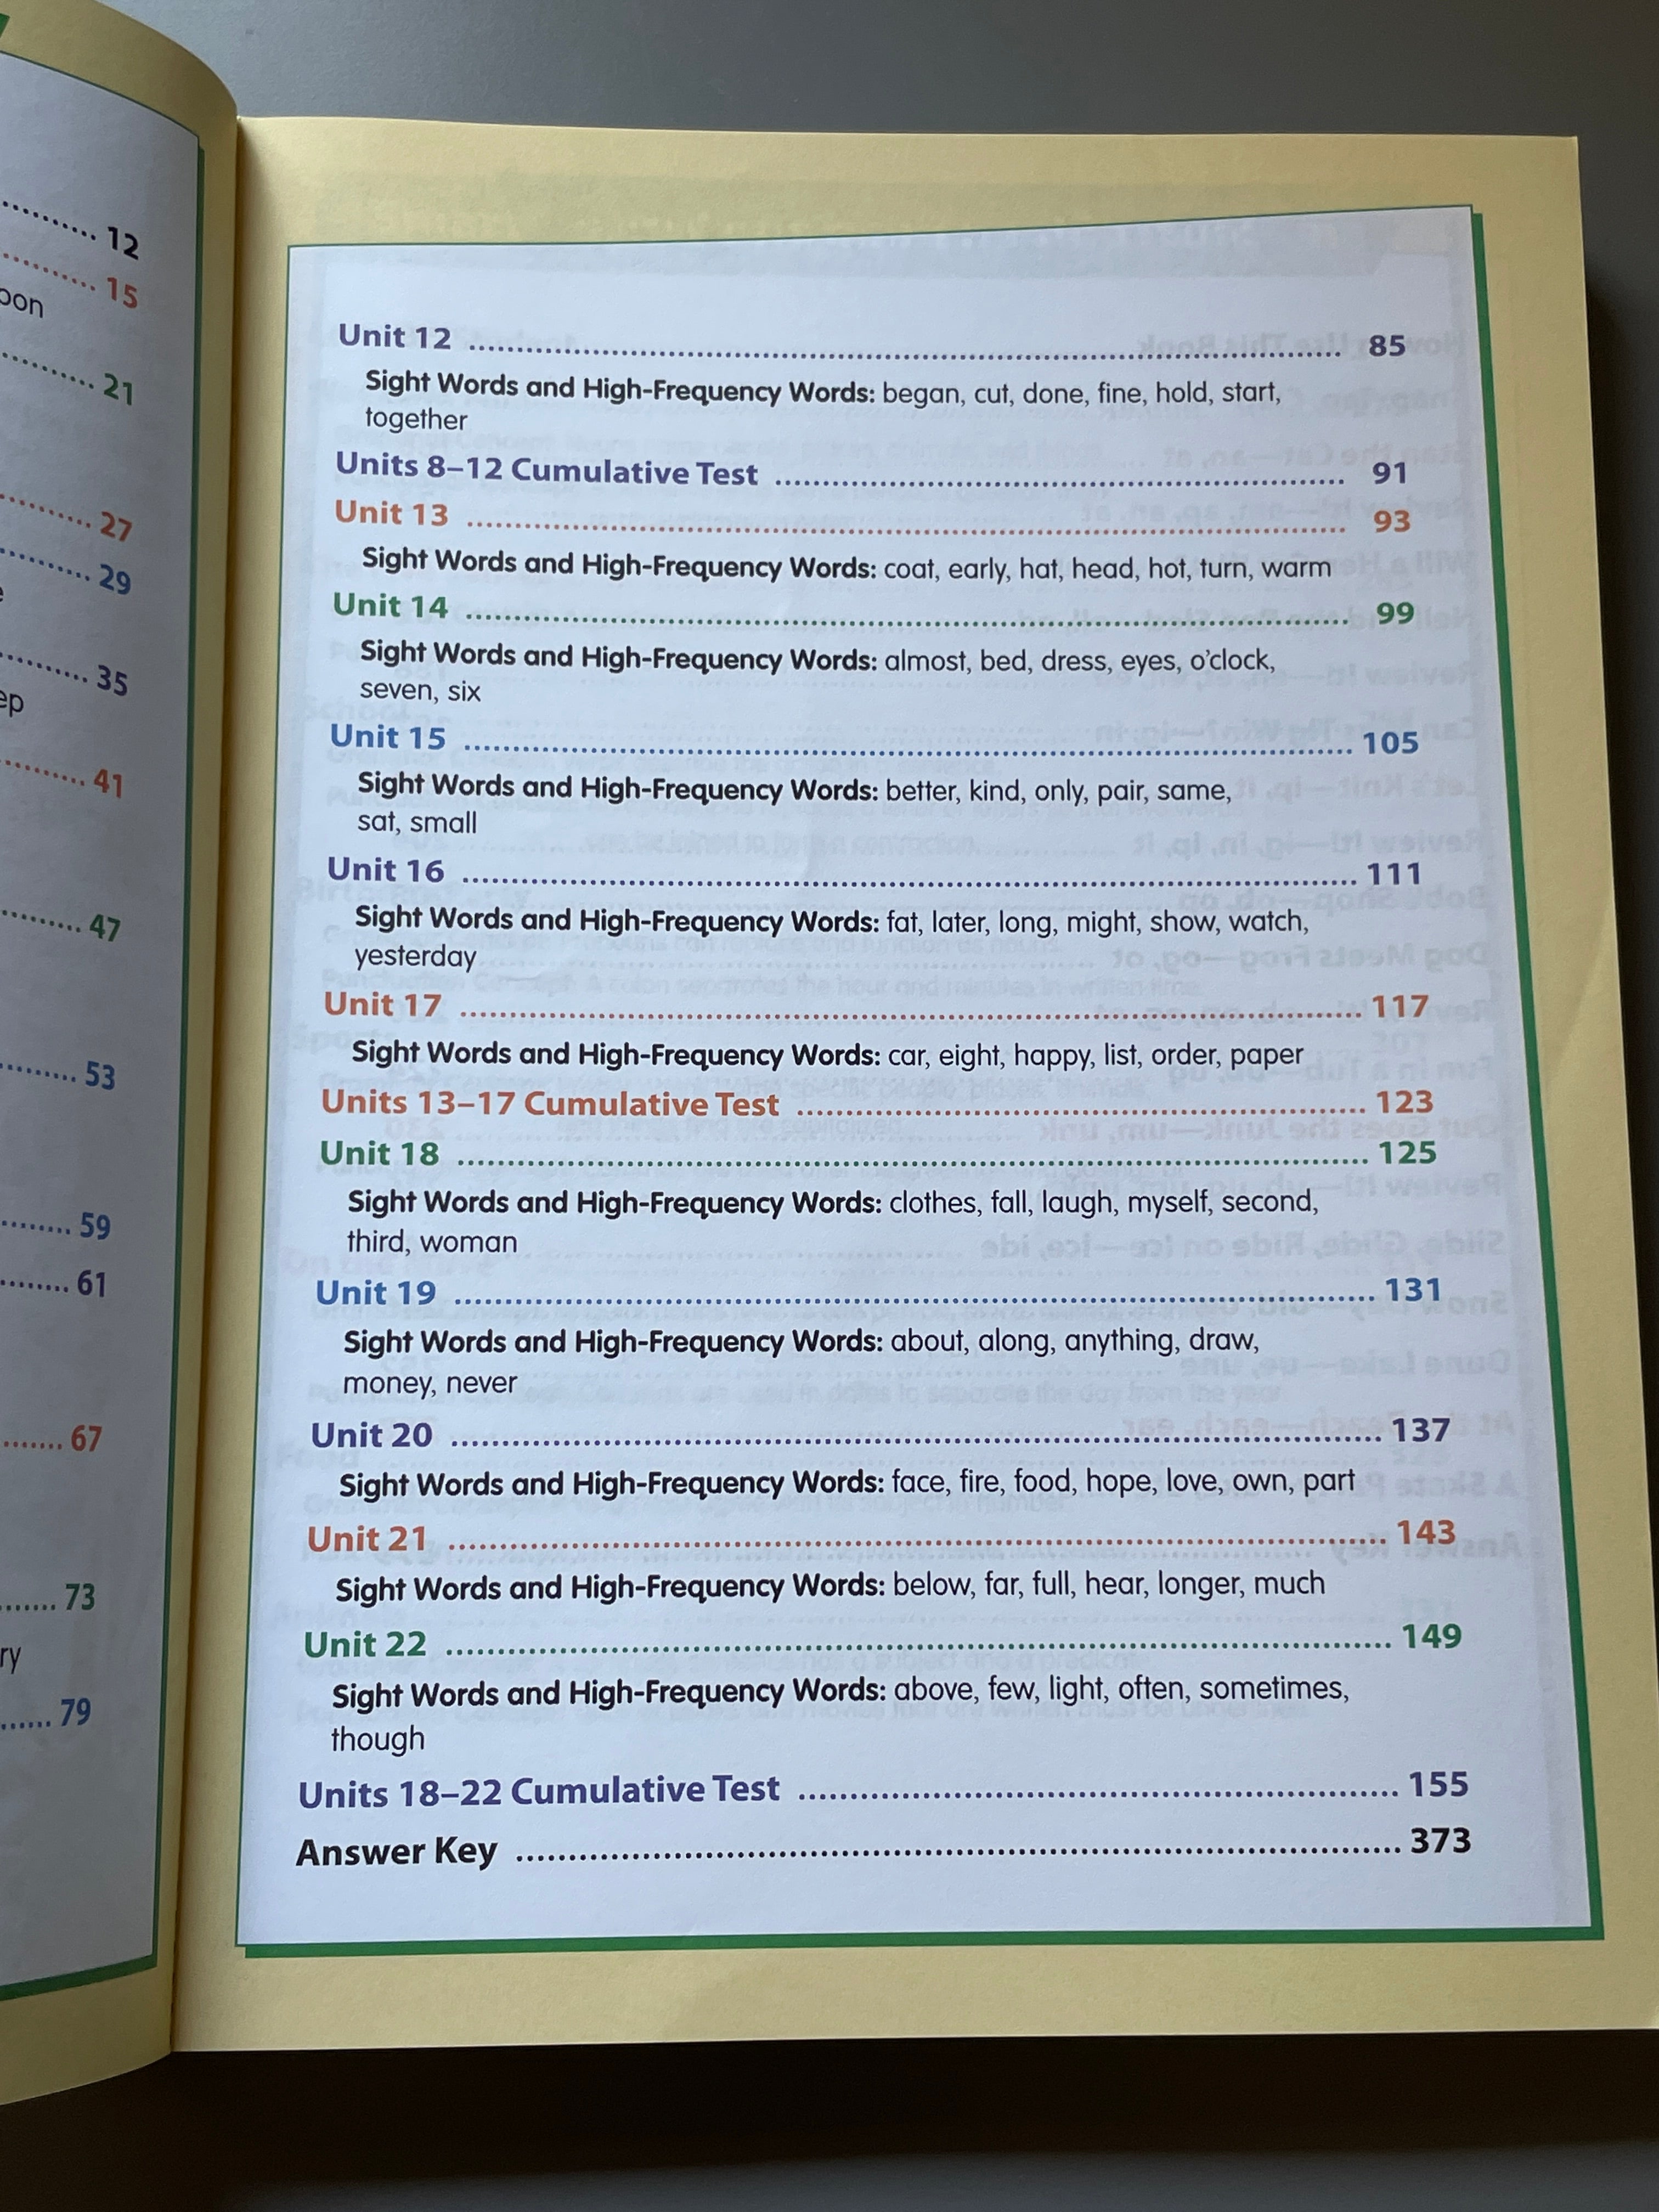 12
15
21
27
29
35
41
47
53
59
61
67
73
ry
79
Unit 12 ........ 85
Sight Words and High-Frequency Words: began, cut, done, fine, hold, start,
together
Units 8–12 Cumulative Test ........ 91
Unit 13 ........ 93
Sight Words and High-Frequency Words: coat, early, hat, head, hot, turn, warm
Unit 14 ........ 99
Sight Words and High-Frequency Words: almost, bed, dress, eyes, o'clock,
seven, six
Unit 15 ........ 105
Sight Words and High-Frequency Words: better, kind, only, pair, same,
sat, small
Unit 16 ........ 111
Sight Words and High-Frequency Words: fat, later, long, might, show, watch,
yesterday
Unit 17 ........ 117
Sight Words and High-Frequency Words: car, eight, happy, list, order, paper
Units 13–17 Cumulative Test ........ 123
Unit 18 ........ 125
Sight Words and High-Frequency Words: clothes, fall, laugh, myself, second,
third, woman
Unit 19 ........ 131
Sight Words and High-Frequency Words: about, along, anything, draw,
money, never
Unit 20 ........ 137
Sight Words and High-Frequency Words: face, fire, food, hope, love, own, part
Unit 21 ........ 143
Sight Words and High-Frequency Words: below, far, full, hear, longer, much
Unit 22 ........ 149
Sight Words and High-Frequency Words: above, few, light, often, sometimes,
though
Units 18–22 Cumulative Test ........ 155
Answer Key ........ 373